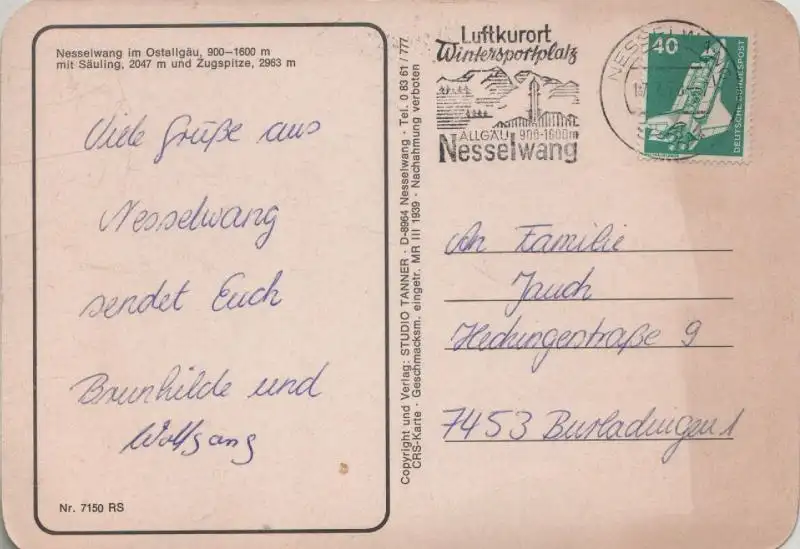 Nesselwang im Ostallgäu, 900–1600 m
mit Säuling, 2047 m und Zugspitze, 2963 m
Viele Grüße aus
Nesselwang
sendet Euch
Brunhilde und
Wolfgang
Nr. 7150 RS
Copyright und Verlag: STUDIO TANNER · D-8964 Nesselwang · Tel. 0 83 61 / 777
CRS-Karte · Geschmacksm. eingetr. MR III 1939 · Nachahmung verboten
Luftkurort
Wintersportplatz
ALLGÄU 900-1600m
Nesselwang
NESSELWANG
40
DEUTSCHE BUNDESPOST
An Familie
Jauch
Hechingerstraße 9
7453 Burladingen 1